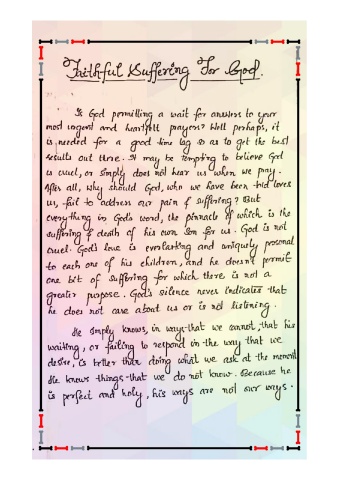 Faithful Suffering For God.
Is God permitting a wait for answers to your
most urgent and heartfelt prayers? Well perhaps, it
is needed for a good time lag so as to get the best
results out there. It may be tempting to believe God
is cruel, or simply does not hear us when we pray.
After all, why should God, who we have been told loves
us, fail to address our pain & suffering? But
everything in God's word, the pinnacle of which is the
suffering & death of his own son for us. God is not
cruel. God's love is everlasting and uniquely personal
to each one of his children, and he doesn't permit
one bit of suffering for which there is not a
greater purpose. God's silence never indicates that
he does not care about us or is not listening.
He simply knows, in ways that we cannot, that his
waiting, or failing to respond in the way that we
desire, is better than doing what we ask at the moment
He knows things that we do not know. Because he
is perfect and holy, his ways are not our ways.